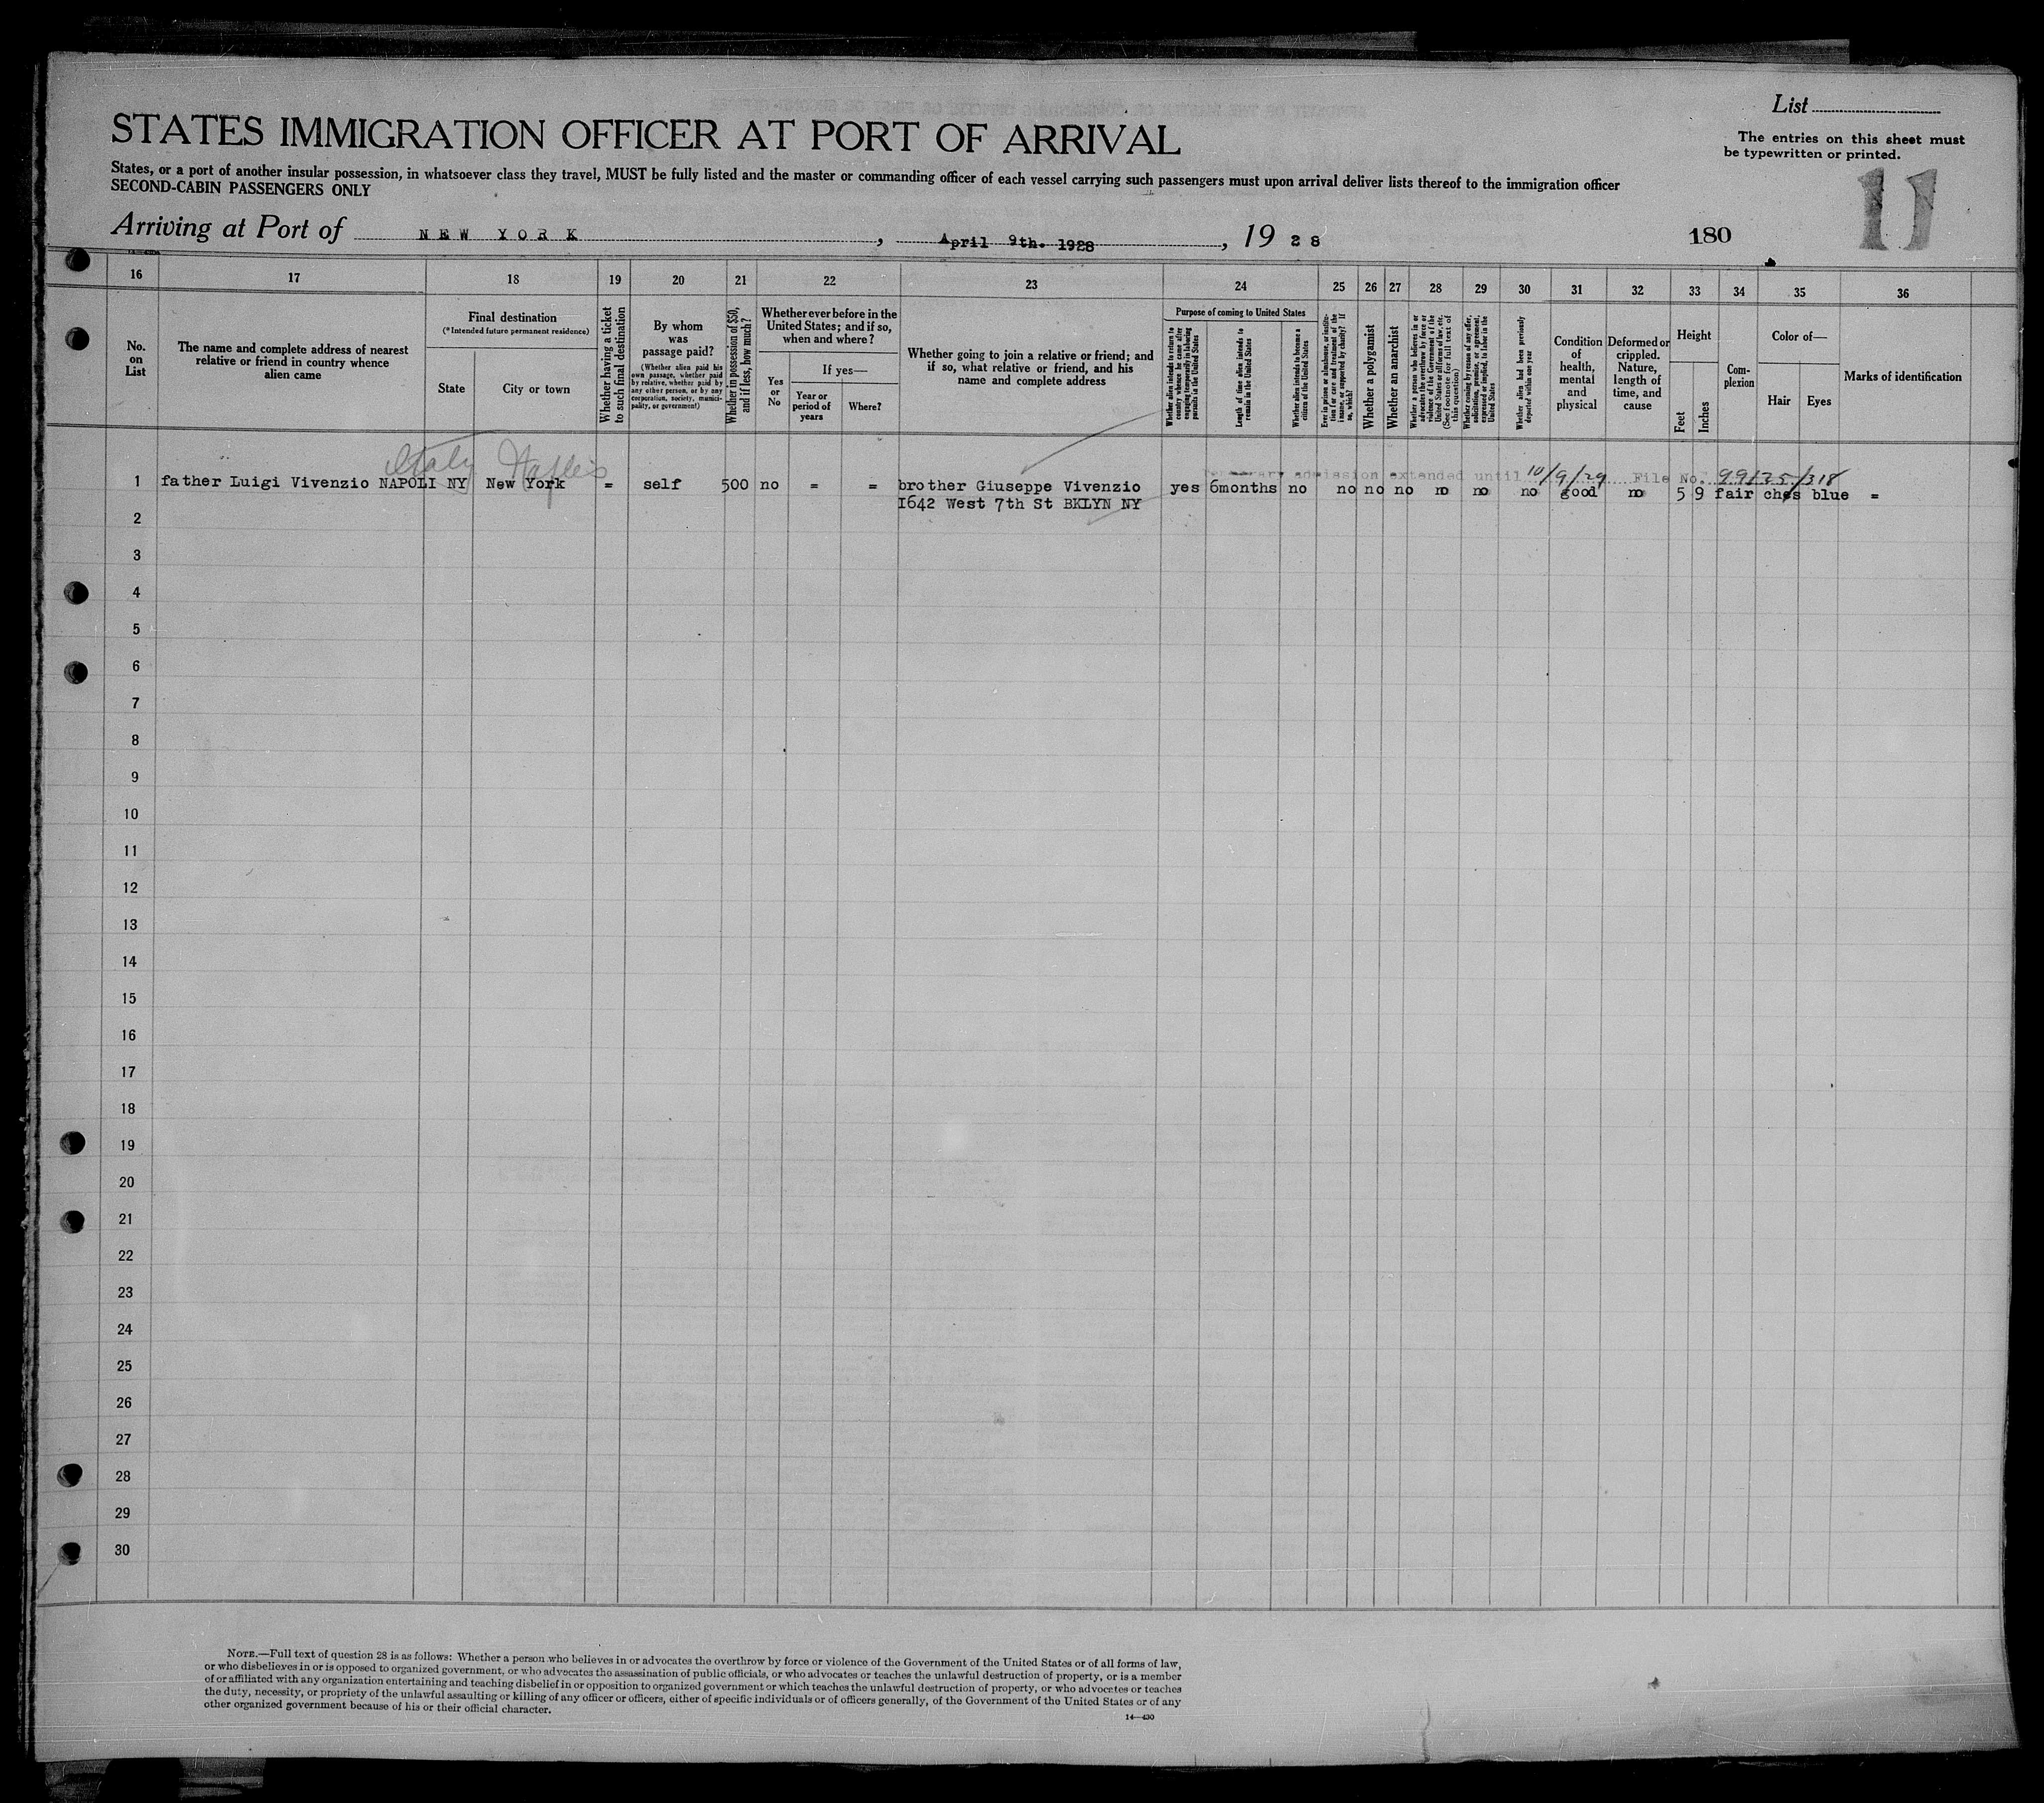 List
STATES IMMIGRATION OFFICER AT PORT OF ARRIVAL
The entries on this sheet must
be typewritten or printed.
States, or a port of another insular possession, in whatsoever class they travel, MUST be fully listed and the master or commanding officer of each vessel carrying such passengers must upon arrival deliver lists thereof to the immigration officer
SECOND-CABIN PASSENGERS ONLY
11
Arriving at Port of NEW YORK, April 9th. 1928, 19 28
180
16 17 18 19 20 21 22 23 24 25 26 27 28 29 30 31 32 33 34 35 36
No. on List
The name and complete address of nearest
relative or friend in country whence
alien came
Final destination
(*Intended future permanent residence)
State
City or town
Whether having a ticket
to such final destination
By whom
was
passage paid?
(Whether alien paid his
own passage, whether paid
by relative, whether paid by
any other person, or by any
corporation, society, munici-
pality, or government)
Whether in possession of $50,
and if less, how much?
Whether ever before in the
United States; and if so,
when and where?
Yes or No
If yes—
Year or
period of
years
Where?
Whether going to join a relative or friend; and
if so, what relative or friend, and his
name and complete address
Purpose of coming to United States
Whether alien intends to return to
country whence he came after
engaging temporarily in laboring
pursuits in the United States
Length of time alien intends to
remain in the United States
Whether alien intends to become a
citizen of the United States
Ever in prison or almshouse, or institu-
tion for care and treatment of the
insane, or supported by charity? If
so, which?
Whether a polygamist
Whether an anarchist
Whether a person who believes in or
advocates the overthrow by force or
violence of the Government of the
United States or all forms of law, etc.
(See footnote for full text of
this question)
Whether coming by reason of any offer,
solicitation, promise, or agreement,
expressed or implied, to labor in the
United States
Whether alien had been previously
deported within one year
Condition
of
health,
mental
and
physical
Deformed or
crippled.
Nature,
length of
time, and
cause
Height
Feet
Inches
Com-
plexion
Color of—
Hair
Eyes
Marks of identification
Italy Naples
Temporary admission extended until 10/9/29 File No. 99125/318
1 father Luigi Vivenzio NAPOLI NY New York = self 500 no = = brother Giuseppe Vivenzio yes 6months no no no no no no no good no 5 9 fair ches blue =
1642 West 7th St BKLYN NY
2
3
4
5
6
7
8
9
10
11
12
13
14
15
16
17
18
19
20
21
22
23
24
25
26
27
28
29
30
NOTE.—Full text of question 28 is as follows: Whether a person who believes in or advocates the overthrow by force or violence of the Government of the United States or of all forms of law,
or who disbelieves in or is opposed to organized government, or who advocates the assassination of public officials, or who advocates or teaches the unlawful destruction of property, or is a member
of or affiliated with any organization entertaining and teaching disbelief in or opposition to organized government or which teaches the unlawful destruction of property, or who advocates or teaches
the duty, necessity, or propriety of the unlawful assaulting or killing of any officer or officers, either of specific individuals or of officers generally, of the Government of the United States or of any
other organized government because of his or their official character.
14—430